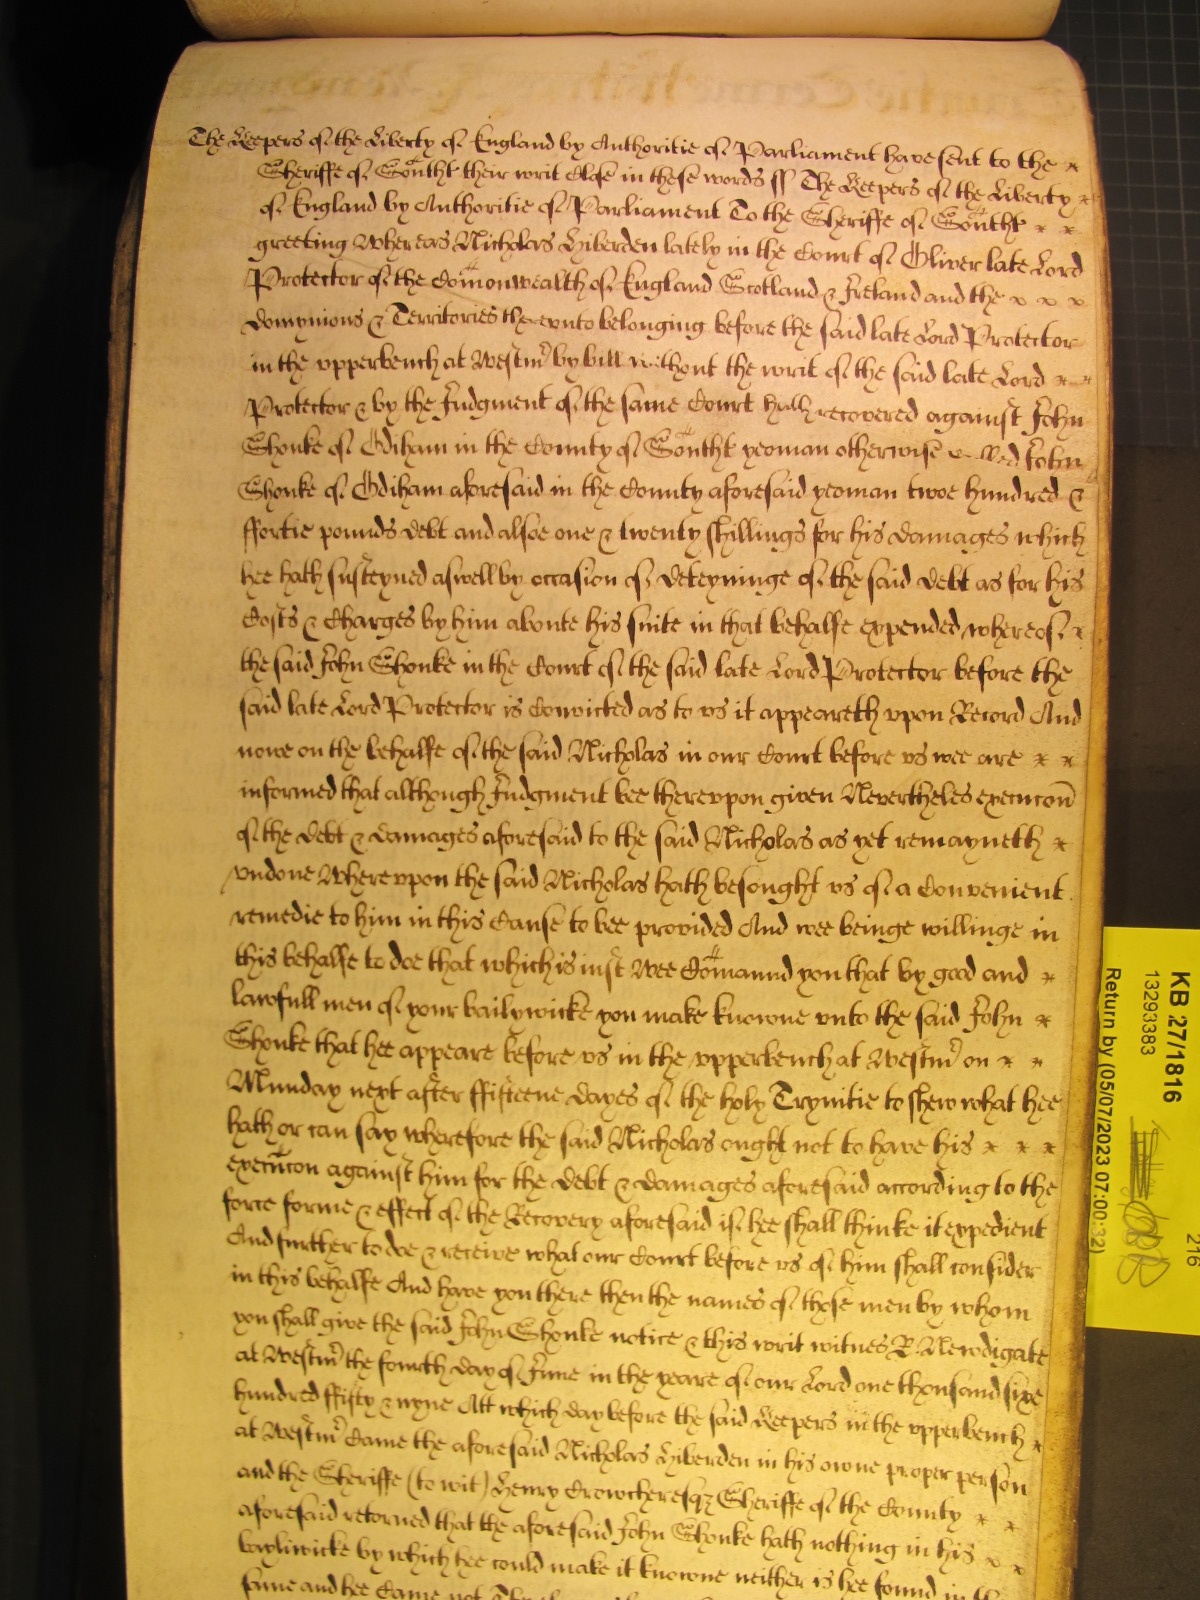 The Keepers of the Liberty of England by Authoritie of Parliament have sent to the
Sheriffe of Southt their writ Close in these words ss The Keepers of the Liberty
of England by Authoritie of Parliament To the Sheriffe of Southt
greeting Whereas Nicholas Hiberden lately in the Court of Oliver late Lord
Protector of the Comonwealth of England Scotland & Ireland and the
domynions & Territories thereunto belonging before the said late Lord Protector
in the upperbench at Westm̄ by bill without the writ of the said late Lord
Protector & by the Judgment of the same Court hath recovered against John
Shonke of Odiham in the County of Southt yeoman otherwise called John
Shonke of Odiham aforesaid in the County aforesaid yeoman twoe hundred &
ffortie pounds debt and alsoe one & twenty shillings for his damages which
hee hath susteyned aswell by occasion of deteyninge of the said debt as for his
Costs & Charges by him aboute his suite in that behalfe expended whereof
the said John Shonke in the Court of the said late Lord Protector before the
said late Lord Protector is Convicted as to us it appeareth upon Record And
nowe on the behalfe of the said Nicholas in our Court before us wee are
informed that although Judgment bee thereupon given Nevertheles execucon
of the debt & damages aforesaid to the said Nicholas as yet remayneth
undone Whereupon the said Nicholas hath besought us of a Convenient
remedie to him in this Cause to bee provided And wee beinge willinge in
this behalfe to doe that which is iust Wee Comaund you that by good and
lawfull men of your bailywicke you make knowne unto the said John
Shonke that hee appeare before us in the upperbench at Westm̄ on
Munday next after ffifteene dayes of the holy Trynitie to shew what hee
hath or can say wherefore the said Nicholas ought not to have his
execucon against him for the debt & damages aforesaid according to the
force forme & effect of the Recovery aforesaid if hee shall thinke it expedient
And further to doe & receive what our Court before us of him shall consider
in this behalfe And have you there then the names of those men by whom
you shall give the said John Shonke notice & this writ witnes R. Newdigate
at Westm̄ the fourth day of June in the yeare of our Lord one thousand sixe
hundred ffifty & nyne Att which day before the said Keepers in the upperbench
at Westm̄ Came the aforesaid Nicholas Hiberden in his owne proper person
and the Sheriffe (to wit) Henry Crowcher esqz Sheriffe of the County
aforesaid retorned that the aforesaid John Shonke hath nothing in his
bayliwicke by which hee could make it knowne neither is hee found in the
same and hee Came not
KB 27/1816
13293383
Return by (05/07/2023 07:00:32)
216